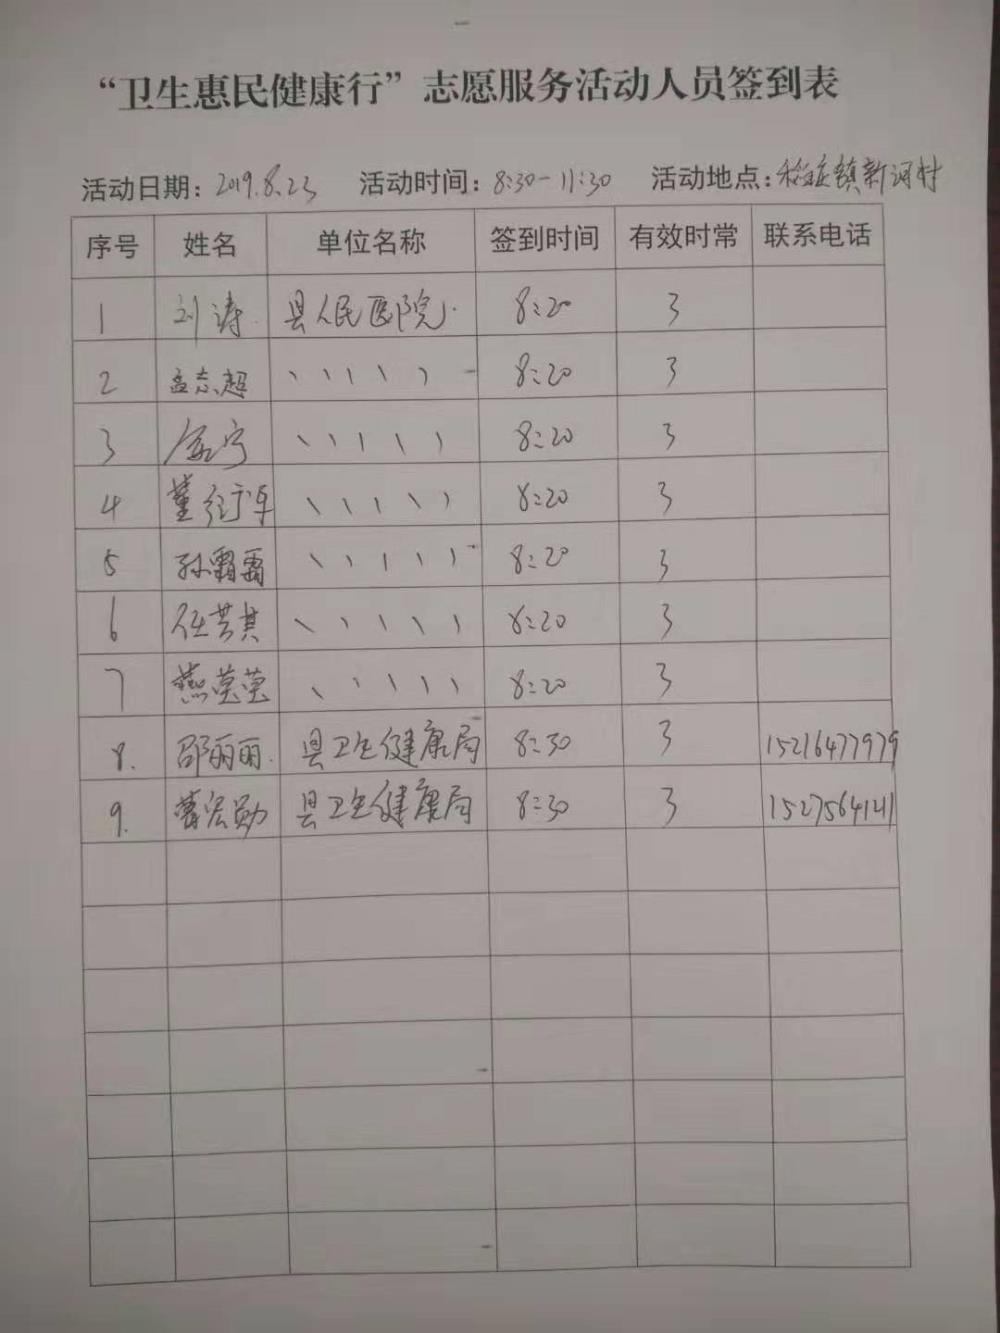 “卫生惠民健康行”志愿服务活动人员签到表
活动日期：2019.8.23 活动时间：8:30-11:30 活动地点：稻庄镇新河村
序号 姓名 单位名称 签到时间 有效时常 联系电话
1 刘涛 县人民医院 8:20 3
2 孟志超 、、、、、 8:20 3
3 宁 、、、、、 8:20 3
4 董 、、、、、 8:20 3
5 孙霜霜 、、、、、 8:20 3
6 任其 、、、、、 8:20 3
7 燕莹莹 、、、、、 8:20 3
8. 邵丽丽 县卫生健康局 8:30 3 15216477979
9. 勋 县卫生健康局 8:30 3 1527564141